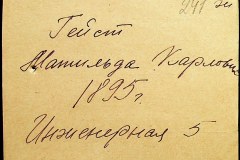 241 ж
Гейст
Матильда Карловн
1895 г.
Инженерная 5